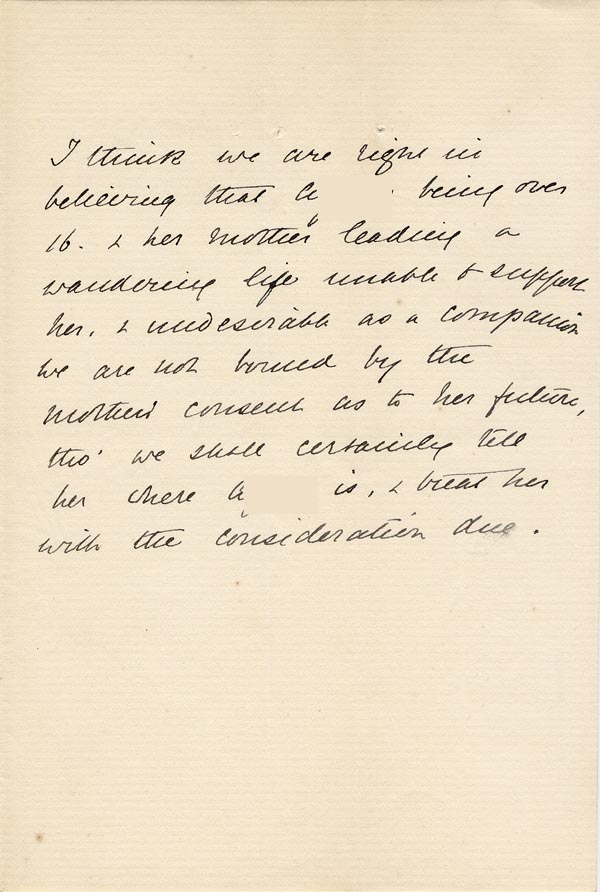 I think we are right in
believing that A being over
16. & her mother leading a
wandering life unable to support
her, & undesirable as a companion
we are not bound by the
mother's consent as to her future,
tho' we shall certainly tell
her where A is, & treat her
with the consideration due.